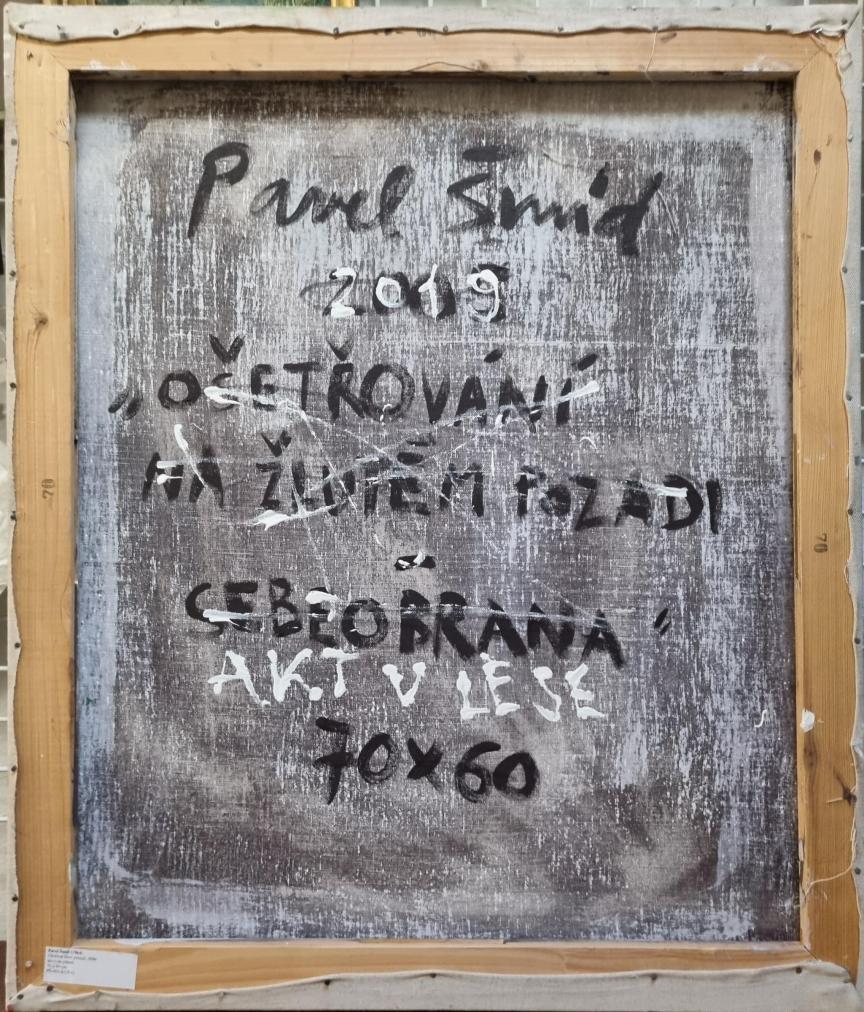 Pavel Šmíd
2019
„OŠETŘOVÁNÍ
NA ŽLUTÉM POZADÍ
–
SEBEOBRANA"
AKT V LESE
70x60
70
70